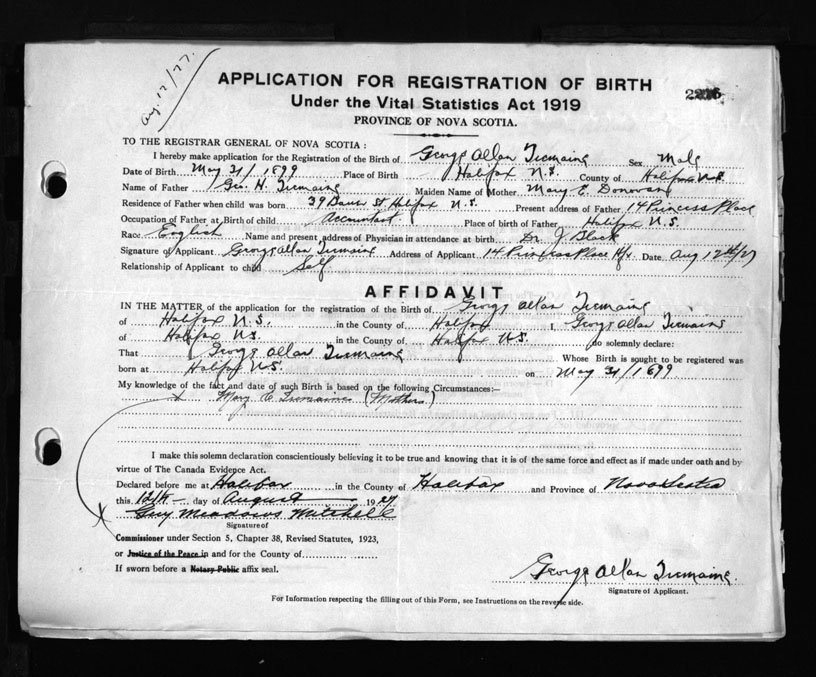 Aug. 12/27.
APPLICATION FOR REGISTRATION OF BIRTH
Under the Vital Statistics Act 1919
PROVINCE OF NOVA SCOTIA.
TO THE REGISTRAR GENERAL OF NOVA SCOTIA :
I hereby make application for the Registration of the Birth of George Allan Tremaine Sex Male
Date of Birth May 31/1899 Place of Birth Halifax N.S. County of Halifax N.S.
Name of Father Geo. H. Tremaine Maiden Name of Mother Mary E. Donovan
Residence of Father when child was born 39 St Halifax N.S. Present address of Father 14 Princess Place
Occupation of Father at Birth of child Accountant Place of birth of Father Halifax N.S.
Race English Name and present address of Physician in attendance at birth Dr J Black
Signature of Applicant George Allan Tremaine Address of Applicant 14 Princess Place Hfx. Date Aug 12th/27
Relationship of Applicant to child Self
AFFIDAVIT
IN THE MATTER of the application for the registration of the Birth of George Allan Tremaine
of Halifax N.S. in the County of Halifax I, George Allan Tremaine
of Halifax N.S. in the County of Halifax N.S. do solemnly declare:
That George Allan Tremaine Whose Birth is sought to be registered was
born at Halifax N.S. on May 31/1899
My knowledge of the fact and date of such Birth is based on the following Circumstances:—
x Mary E. Tremaine (Mother)
I make this solemn declaration conscientiously believing it to be true and knowing that it is of the same force and effect as if made under oath and by
virtue of The Canada Evidence Act.
Declared before me at Halifax in the County of Halifax and Province of Nova Scotia
this 12th day of August 1927
x Guy Meadows Mitchell
Signature of
Commissioner under Section 5, Chapter 38, Revised Statutes, 1923,
or Justice of the Peace in and for the County of
If sworn before a Notary Public affix seal.
George Allan Tremaine.
Signature of Applicant.
For Information respecting the filling out of this Form, see Instructions on the reverse side.